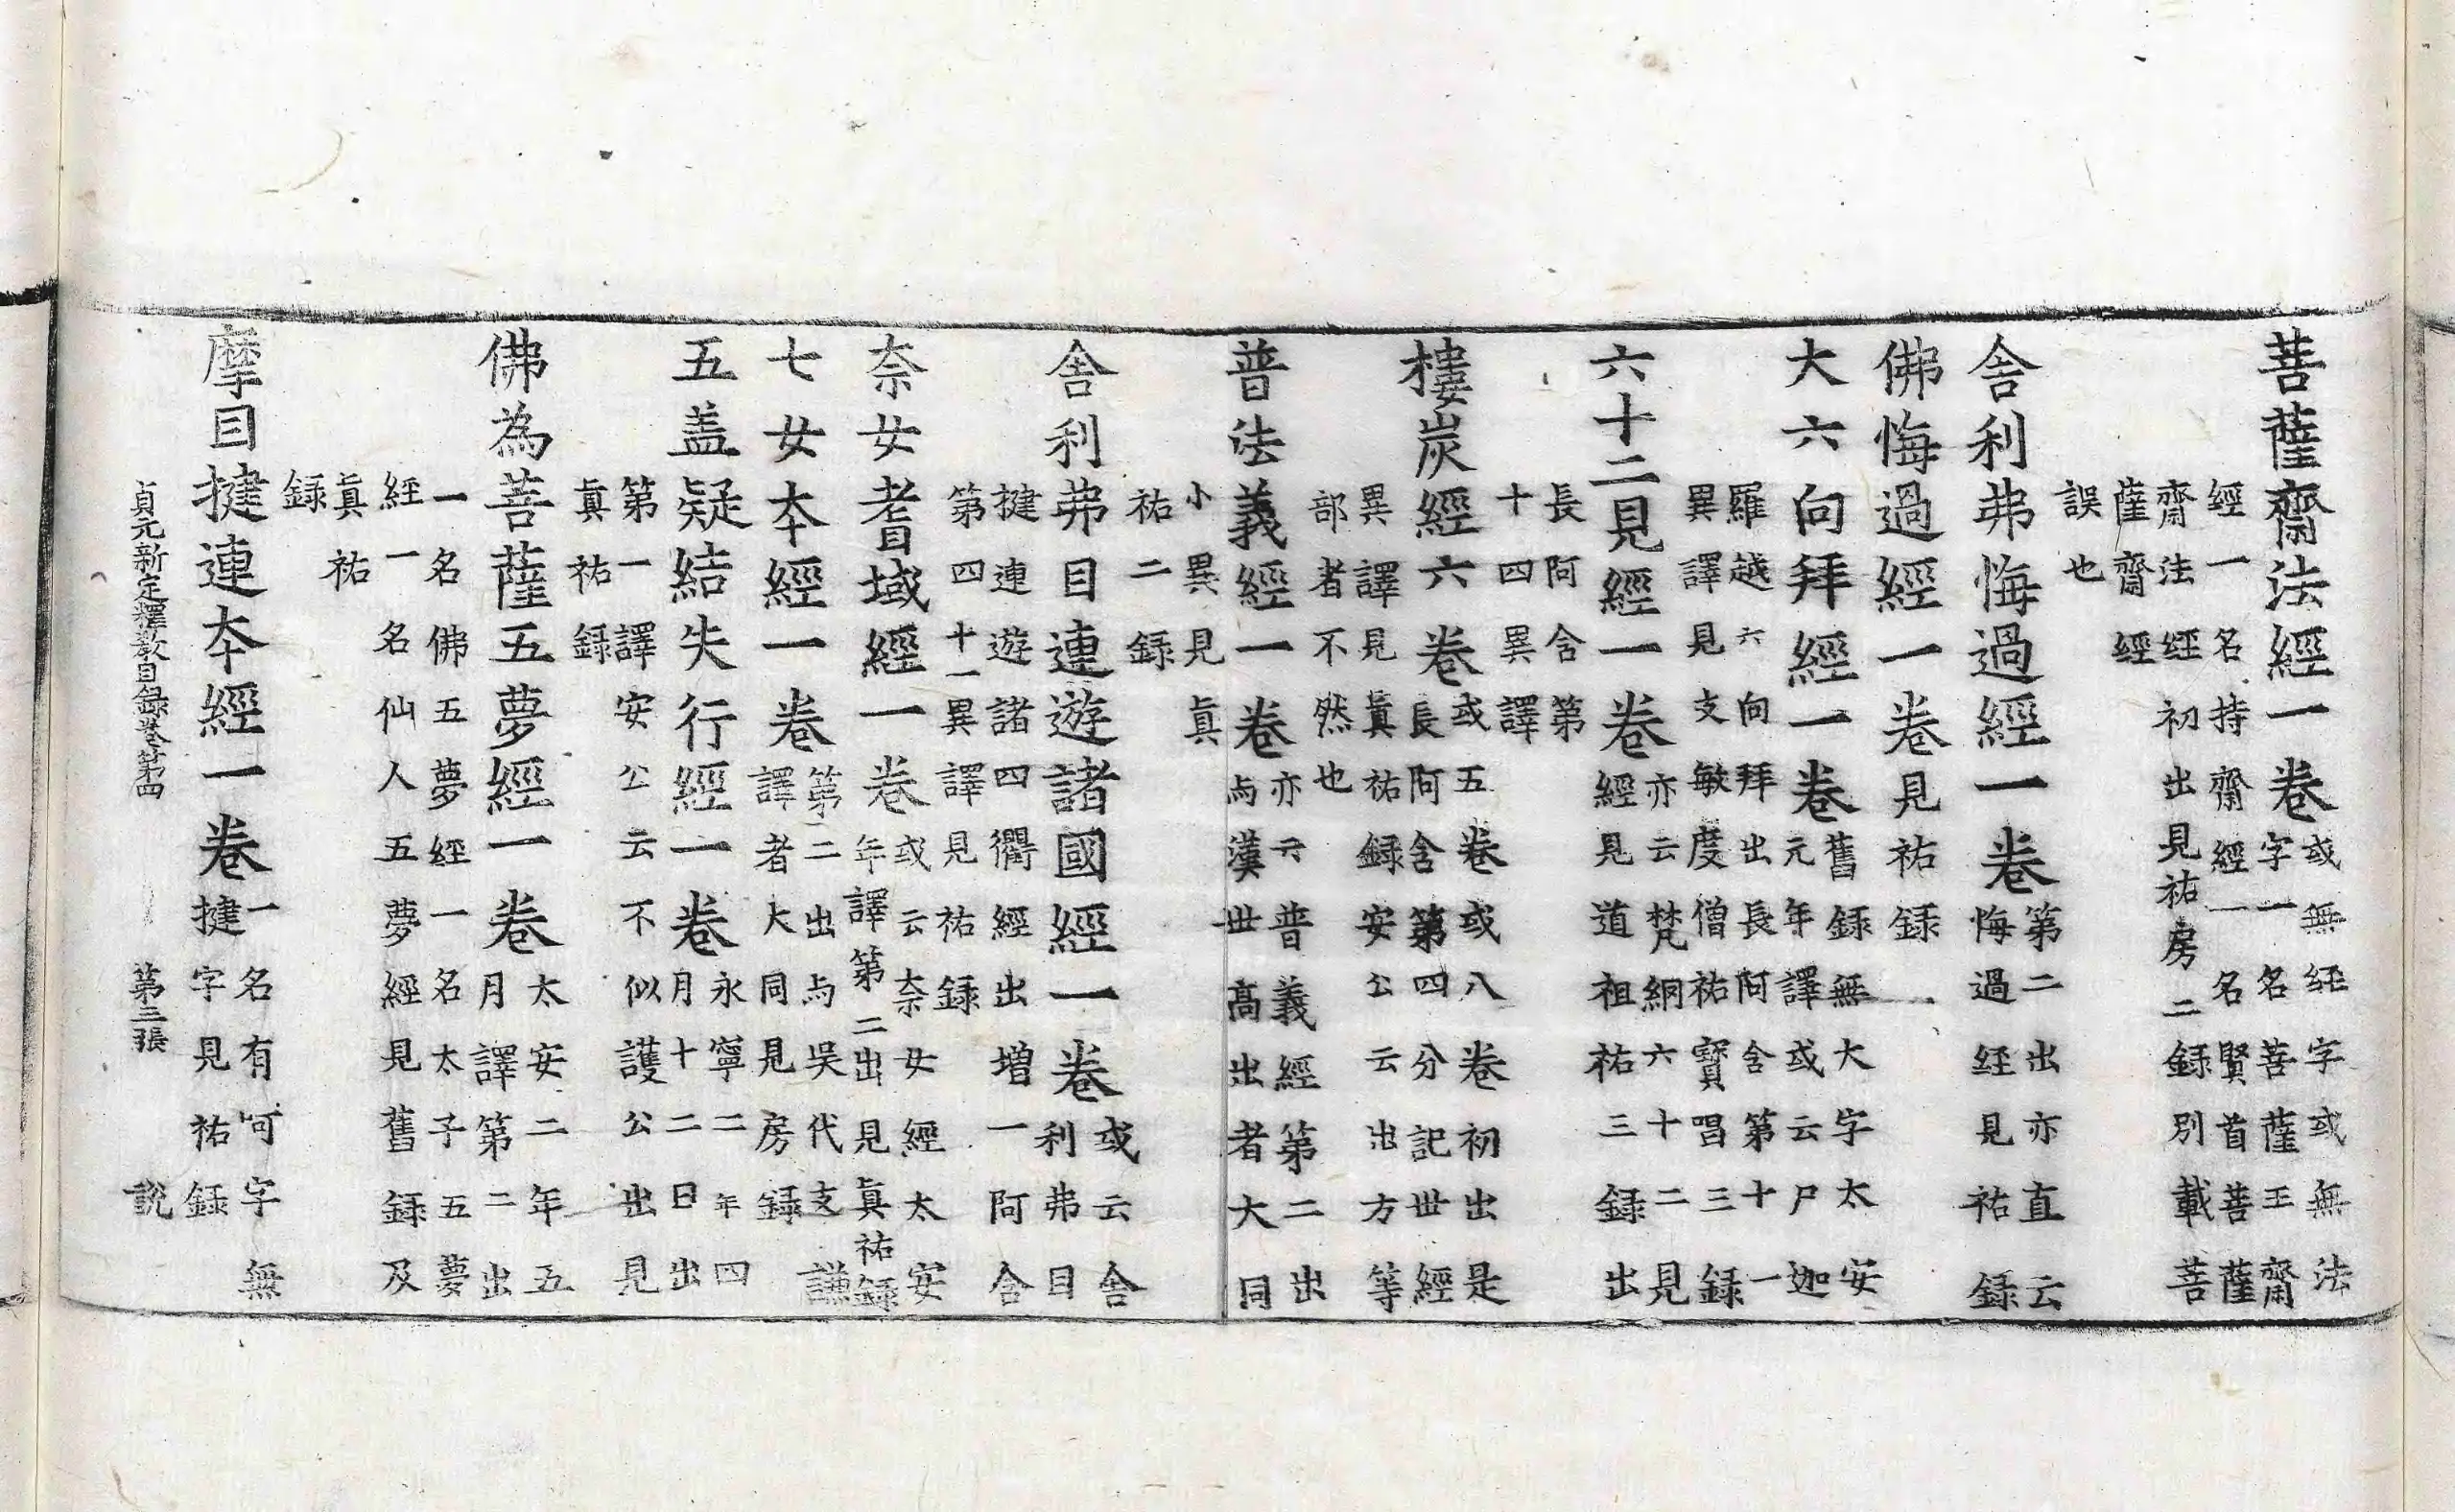 菩薩齋法經一卷
或無経字或無法
字一名菩薩王齋
經一名持齋經一名賢首菩薩
齋法経初出見祐房二録別載菩
薩齋経
誤也
舍利弗悔過經一卷
第二出亦直云
悔過経見祐録
佛悔過經一卷見祐録
大六向拜經一卷
舊録無大字太安
元年譯或云尸迦
羅越六向拜出長阿含第十一
異譯見支敏度僧祐寶唱三録
六十二見經一卷
亦云梵網六十二見
經見道祖祐三録出
長阿含第
十四異譯
樓炭經六卷
或五卷或八卷初出是
長阿含第四分記世經
異譯見眞祐録安公云出方等
部者不然也
普法義經一卷
亦云普義經第二出
与漢世高出者大同
小異見眞
祐二録
舍利弗目連遊諸國經一卷
或云舍
利弗目
揵連遊諸四衢經出增一阿含
第四十一異譯見祐録
奈女耆域經一卷
或云奈女經太安
年譯第二出見眞祐録
七女本經一卷
第二出与吳代支謙
譯者大同見房録
五盖疑結失行經一卷
永寧二年四
月十二日出
第一譯安公云不似護公出見
眞祐録
佛為菩薩五夢經一卷
太安二年五
月譯第二出
一名佛五夢経一名太子五夢
經一名仙人五夢經見舊録及
眞祐
録
摩目揵連本經一卷
一名有呵字無
揵字見祐録
貞元新定釋教目録巻第四 第三張 說